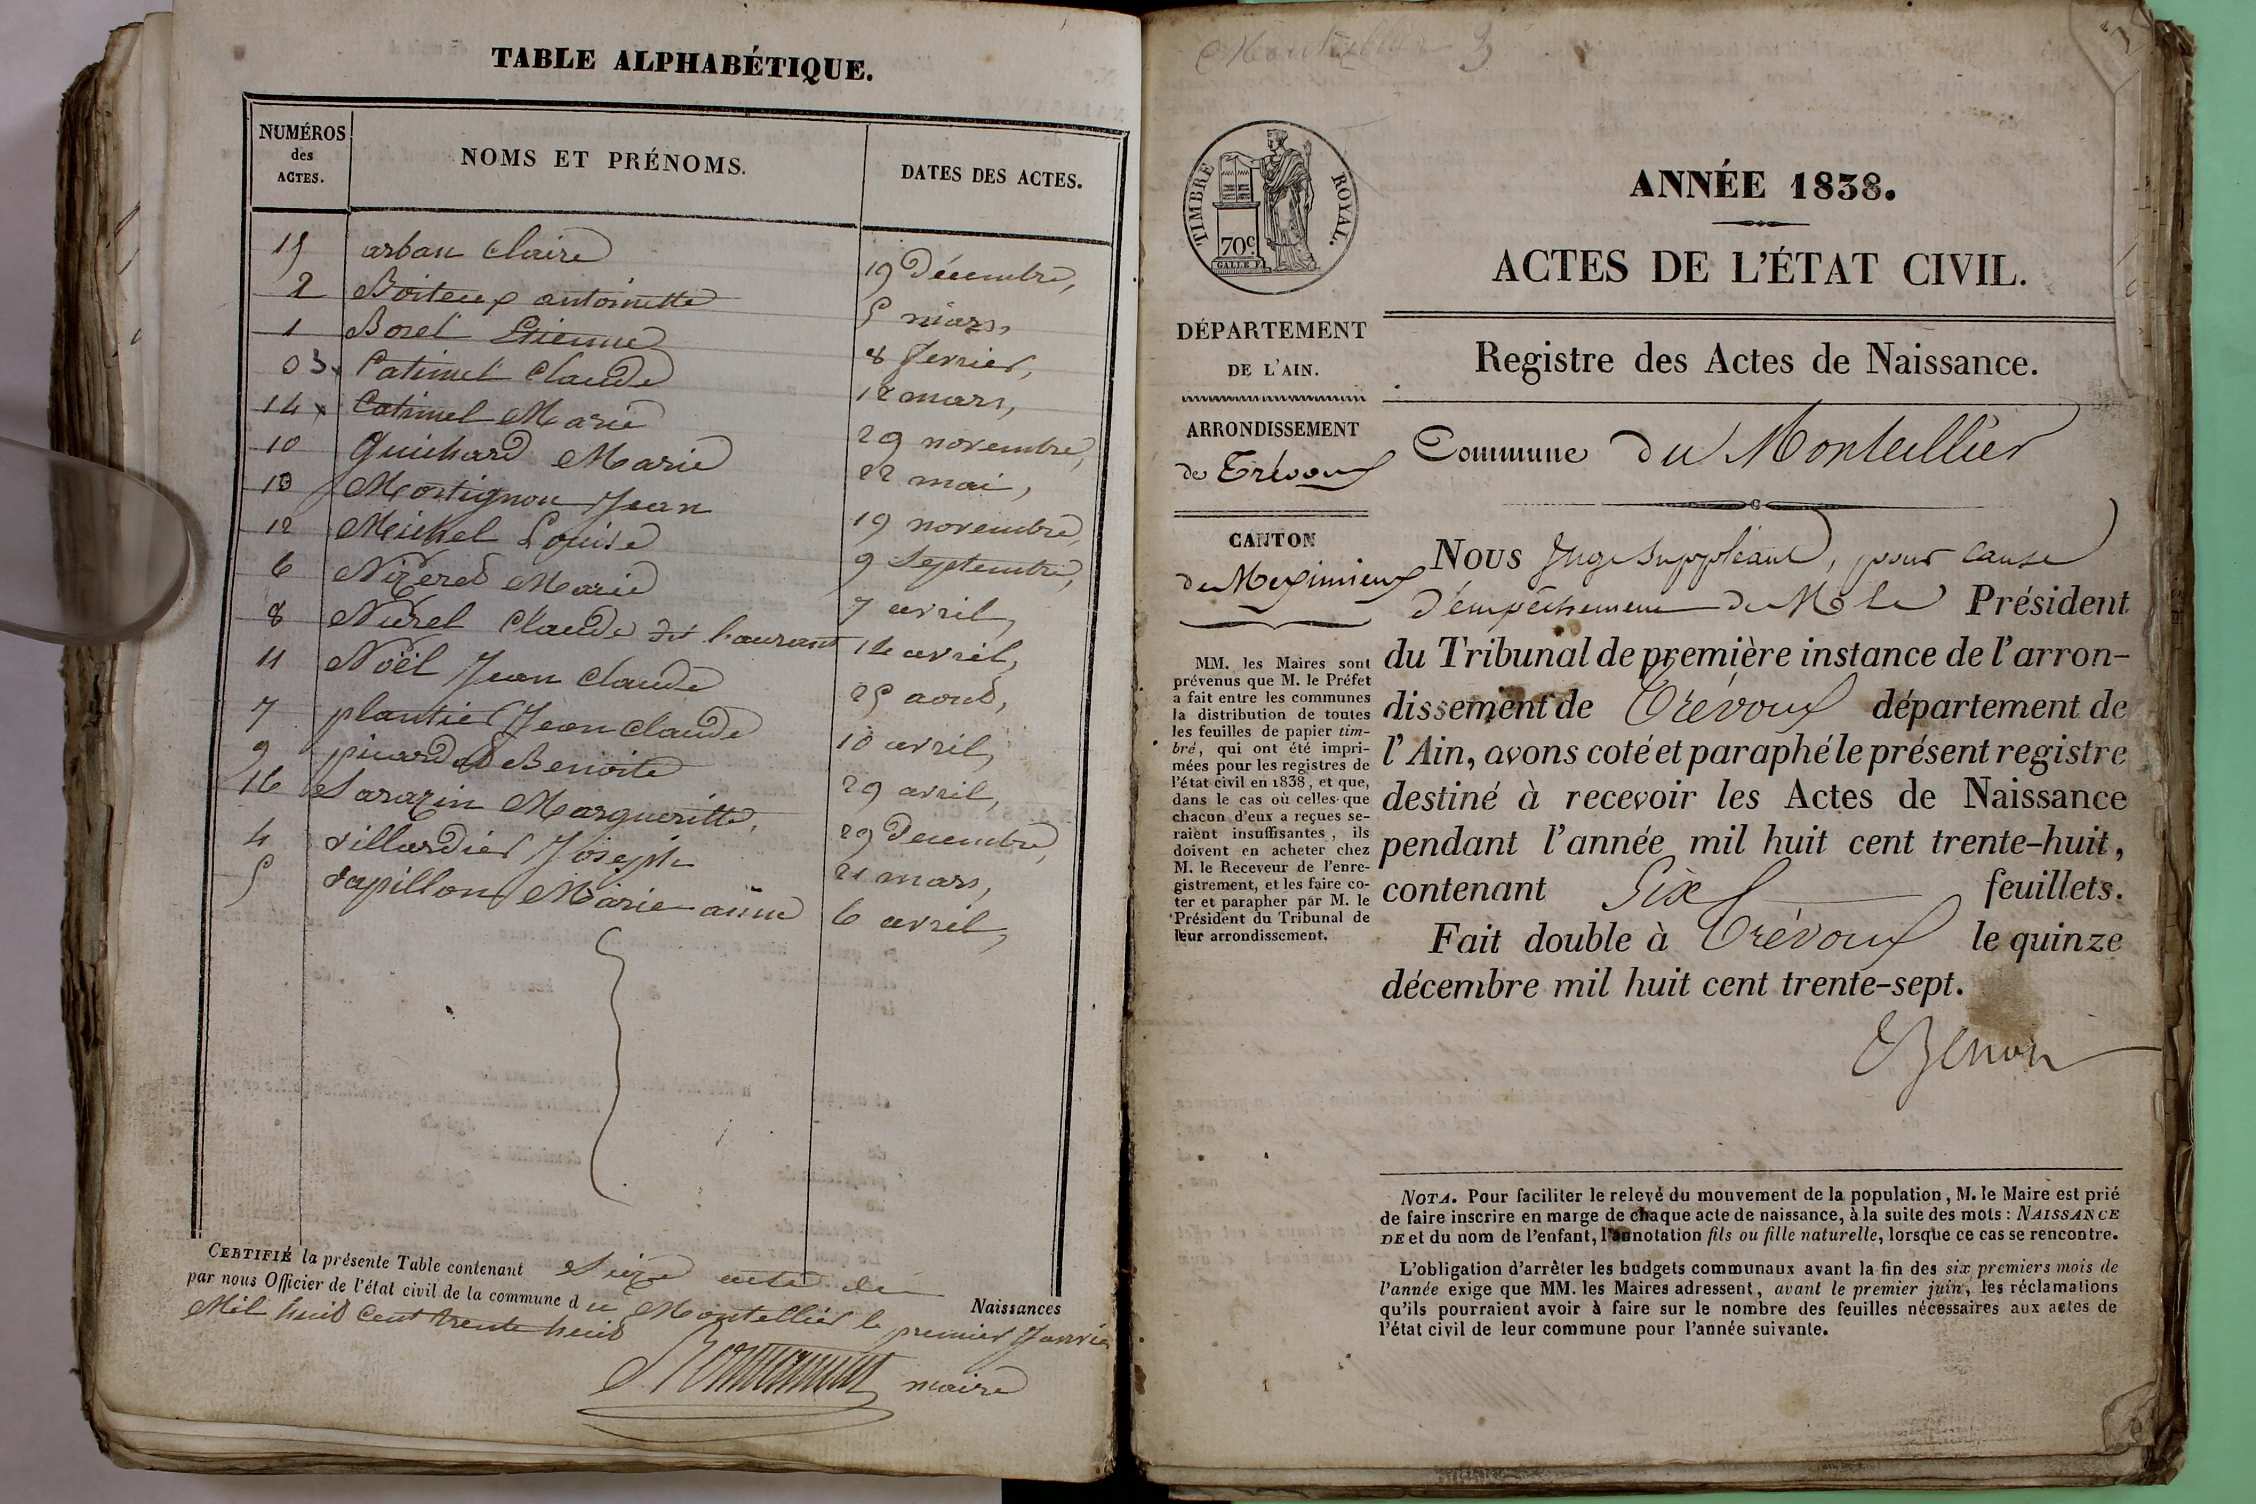 TABLE ALPHABÉTIQUE.
NUMÉROS des ACTES. NOMS ET PRÉNOMS. DATES DES ACTES.
15 arban Claire 19 Décembre,
2 Boiteux antoinette 5 mars,
1 Borel Etienne 8 fevrier,
03 Catimel Claude 12 mars,
14 Catimel Marie 29 novembre,
10 Guichard Marie 22 mai,
13 Mortignon Jean 19 novembre,
12 Michel Louise 9 Septembre,
6 Nizeret Marie 7 avril,
8 Claude dit 14 avril,
11 Noël Jean Claude 25 aout,
7 plantier Jean Claude 10 avril,
9 picard Benoite 29 avril,
16 Sarazin Margueritte, 29 Decembre,
4 villardier Joseph 21 mars,
5 Marie anne 6 avril,
CERTIFIÉ la présente Table contenant Seize acte de Naissances
par nous Officier de l'état civil de la commune du Montellier le premier Janvier
Mil huit Cent trente huit
maire
3
TIMBRE ROYAL.
70c
ANNÉE 1838.
ACTES DE L'ÉTAT CIVIL.
Registre des Actes de Naissance.
DÉPARTEMENT
DE L'AIN.
ARRONDISSEMENT
de Trévoux
CANTON
de Meximieux
MM. les Maires sont
prévenus que M. le Préfet
a fait entre les communes
la distribution de toutes
les feuilles de papier tim-
bré, qui ont été impri-
mées pour les registres de
l'état civil en 1838, et que,
dans le cas où celles que
chacun d'eux a reçues se-
raient insuffisantes, ils
doivent en acheter chez
M. le Receveur de l'enre-
gistrement, et les faire co-
ter et parapher par M. le
Président du Tribunal de
leur arrondissement.
Commune du Montellier
Nous Juge Suppléant, pour cause
d'empêchement de M. le Président
du Tribunal de première instance de l'arron-
dissement de Trévoux département de
l'Ain, avons coté et paraphé le présent registre
destiné à recevoir les Actes de Naissance
pendant l'année mil huit cent trente-huit,
contenant Six feuillets.
Fait double à Trévoux le quinze
décembre mil huit cent trente-sept.
NOTA. Pour faciliter le relevé du mouvement de la population, M. le Maire est prié
de faire inscrire en marge de chaque acte de naissance, à la suite des mots : NAISSANCE
DE et du nom de l'enfant, l'annotation fils ou fille naturelle, lorsque ce cas se rencontre.
L'obligation d'arrêter les budgets communaux avant la fin des six premiers mois de
l'année exige que MM. les Maires adressent, avant le premier juin, les réclamations
qu'ils pourraient avoir à faire sur le nombre des feuilles nécessaires aux actes de
l'état civil de leur commune pour l'année suivante.